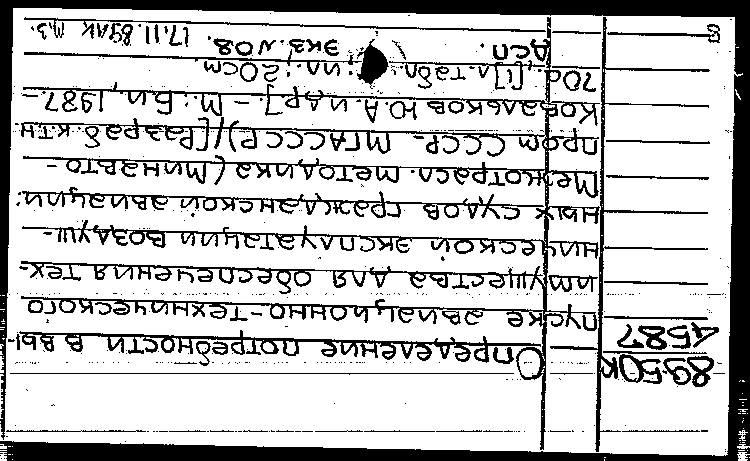 8950к
4587
Определение потребности в вы-
пуске авиационно-технического
имущества для обеспечения тех-
нической эксплуатации воздуш-
ных судов гражданской авиации:
Межотрасл. методика (Минавто-
пром СССР - МГА СССР)/[Разраб.
Ковальков Ю.А. и др.]. - М.: Б.и., 1987. -
70с., [1] л. табл.: ил.; 20см.
Дсп. Экз. №08. 17.11.89